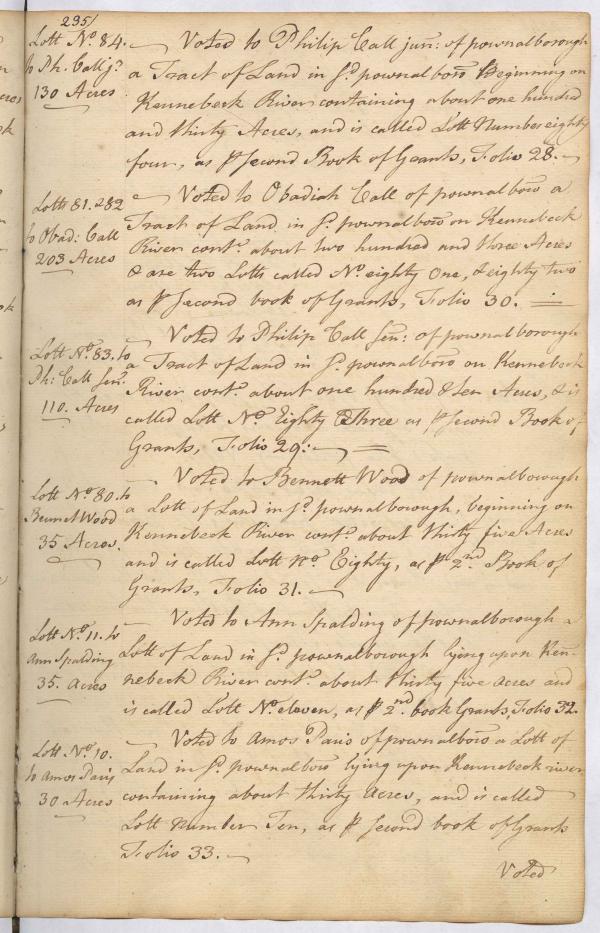 235/
Lott No. 84.
to Ph. Call jr.
130 Acres
Voted to Philip Call jun: of pownalborough
a Tract of Land in sd. pownalboro Beginning on
Kennebeck River containing about one hundred
and thirty Acres, and is called Lott Number eighty
four, as pr Second Book of Grants, Folio 28.
Lotts 81. & 82
to Obad: Call
203 Acres
Voted to Obadiah Call of pownalboro a
Tract of Land in sd. pownalboro on Kennebeck
River cont. about two hundred and three Acres
& are two Lotts called No. eighty One, & eighty two
as pr Second book of Grants, Folio 30.
Lott No. 83. to
Ph: Call Senr.
110. Acres
Voted to Philip Call Sen: of pownalborough
a Tract of Land in sd. pownalboro on Kennebeck
River cont. about one hundred & ten Acres, & is
called Lott No. Eighty Three as pr Second Book of
Grants, Folio 29:
Lott No. 80. to
Bennet Wood
35 Acres.
Voted to Bennett Wood of pownalborough
a Lott of Land in sd. pownalborough, beginning on
Kennebeck River cont. about thirty five Acres
and is called Lott No. Eighty, as pr 2nd. Book of
Grants, Folio 31.
Lott No. 11. to
Ann Spalding
35. Acres
Voted to Ann Spalding of pownalborough a
Lott of Land in sd. pownalborough lying upon Ken-
nebeck River cont. about thirty five acres and
is called Lott No. eleven, as pr 2nd. book Grants, Folio 32.
Lott No. 10.
to Amos Paris
30 Acres
Voted to Amos Paris of pownalboro a Lott of
Land in sd. pownalboro lying upon Kennebeck river
containing about thirty Acres, and is called
Lott Number Ten, as pr Second book of Grants
Folio 33.
Voted